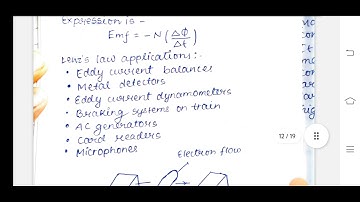 Expression is -
Emf = -N (ΔΦ/Δt)
Lenz's law applications:-
• Eddy current balances
• Metal detectors
• Eddy current dynamometers
• Braking systems on train
• AC generators
• Card readers
• Microphones
Electron flow
12 / 19